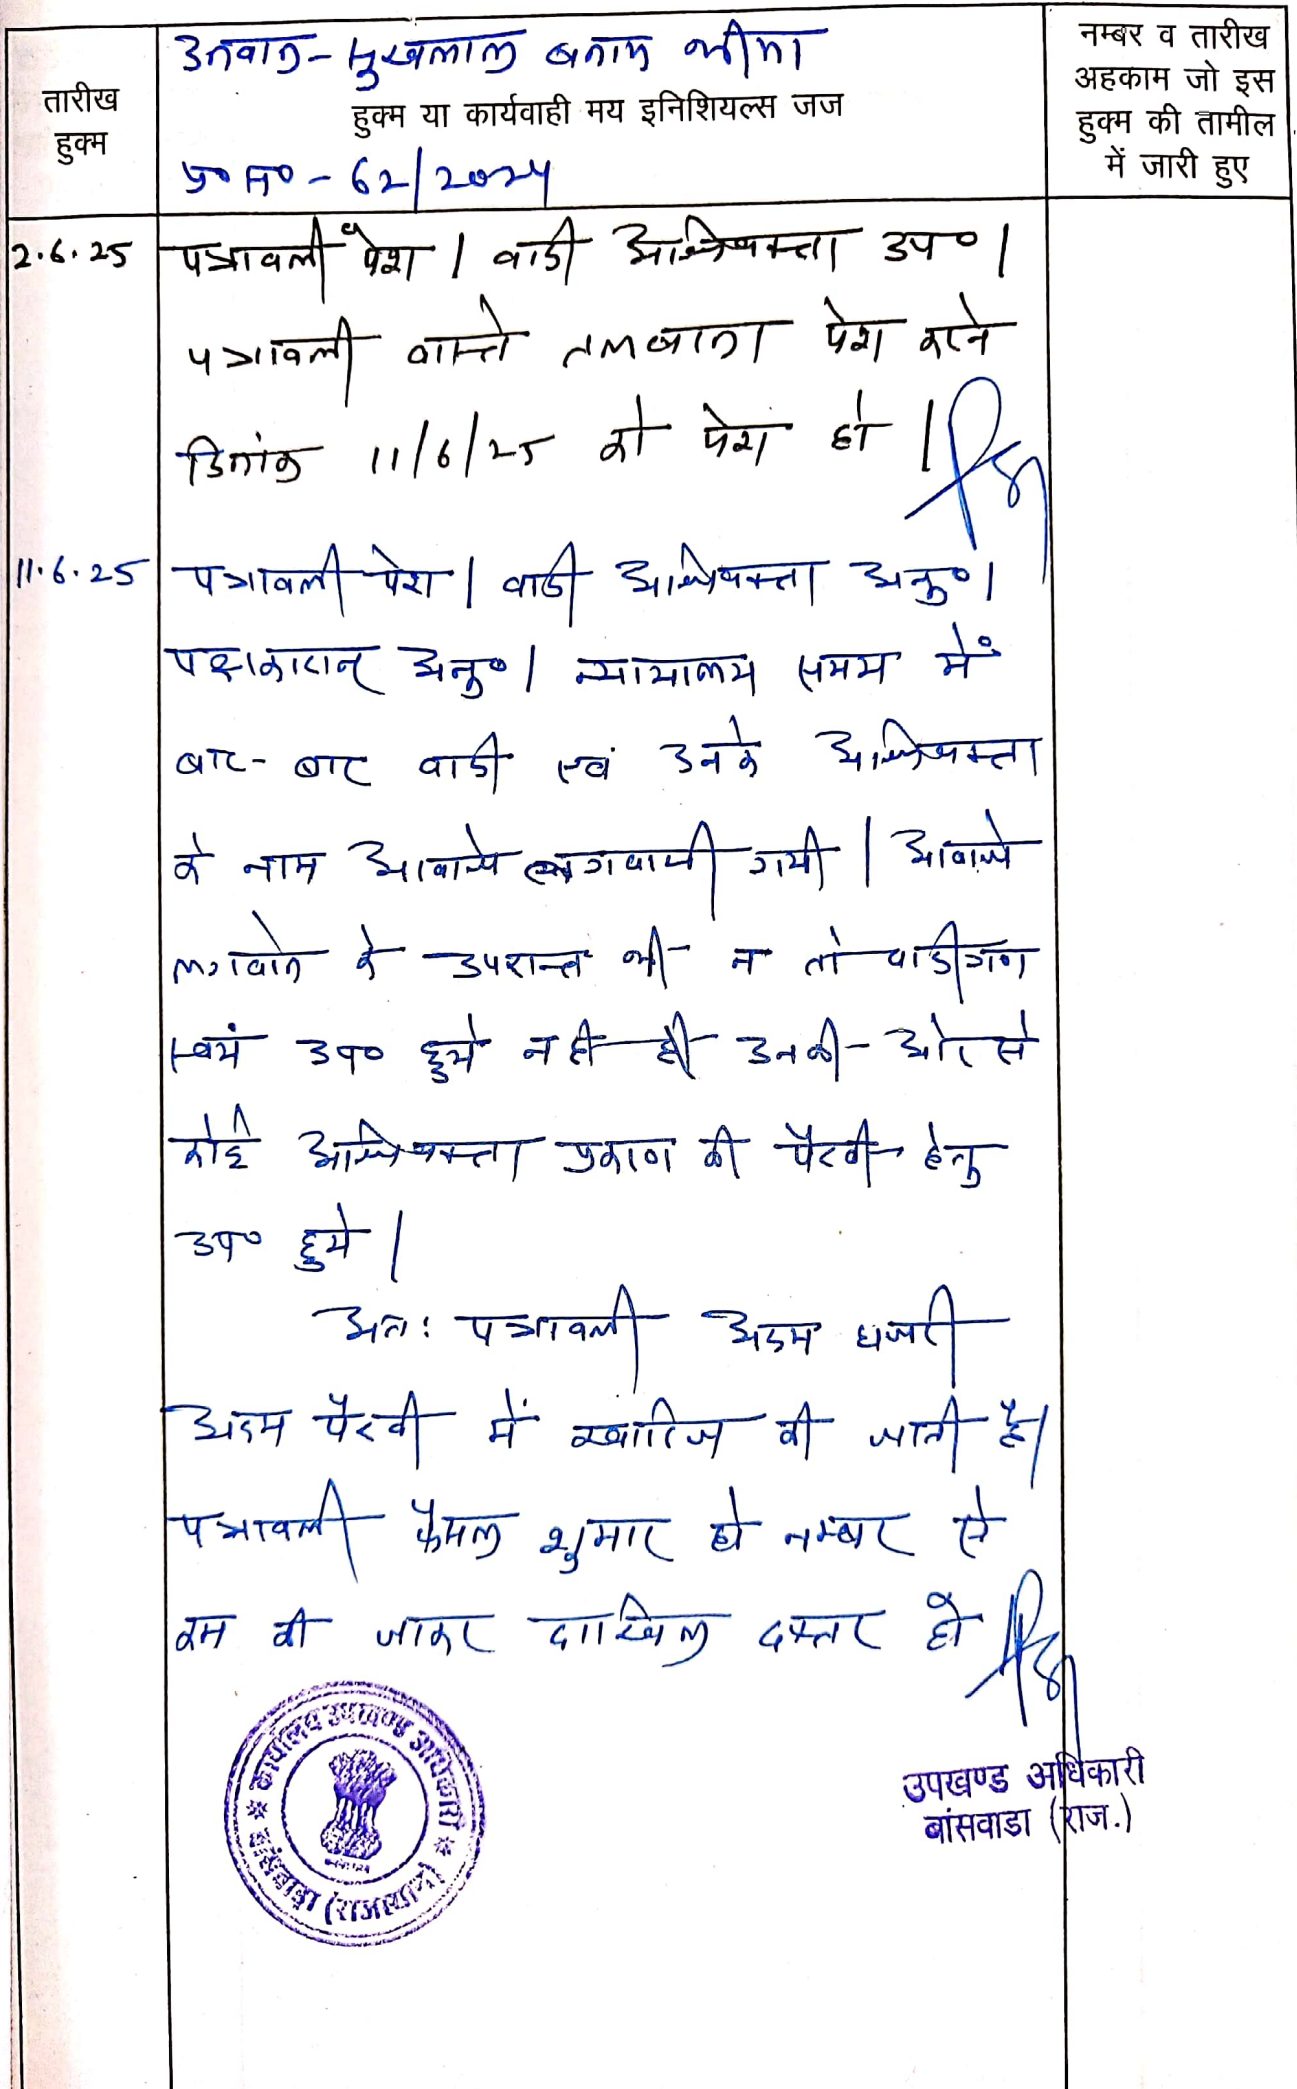 उनवान - सुखलाल बनाम भीमा
तारीख
हुक्म
हुक्म या कार्यवाही मय इनिशियल्स जज
प्र० स० - 62/2024
नम्बर व तारीख
अहकाम जो इस
हुक्म की तामील
में जारी हुए
2.6.25 पत्रावली पेश। वादी अभिवक्ता उप०।
पत्रावली वास्ते तलबाना पेश करने
दिनांक 11/6/25 को पेश हो।
11.6.25 पत्रावली पेश। वादी अभिवक्ता अनु०।
पक्षकारान् अनु०। न्यायालय समय में
बार-बार वादी एवं उनके अभिवक्ता
के नाम आवाजे लगवायी गयी। आवाजे
लगवाने के उपरान्त भी न तो वादीगण
स्वयं उप० हुये न ही उनकी ओर से
कोई अभिवक्ता प्रकरण की पैरवी हेतु
उप० हुये।
अतः पत्रावली अदम हाजरी
अदम पैरवी में खारिज की जाती है।
पत्रावली फैसल शुमार हो नम्बर से
कम की जाकर दाखिल दफ्तर हो
कार्यालय उपखण्ड अधिकारी
बांसवाड़ा (राजस्थान)
उपखण्ड अधिकारी
बांसवाडा (राज.)